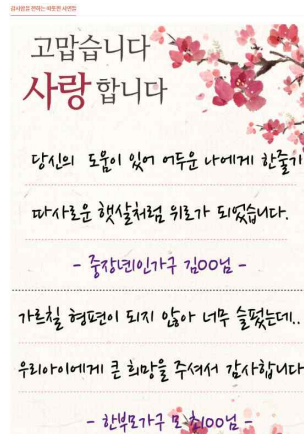 감사함을 전하는 따뜻한 서면찰
고맙습니다
사랑합니다
당신의 도움이 있어 어두운 나에게 한줄기
따사로운 햇살처럼 위로가 되었습니다.
- 중장년1인가구 김OO님 -
가르칠 형편이 되지 않아 너무 슬펐는데..
우리아이에게 큰 희망을 주셔서 감사합니다
- 한부모가구 모 최OO님 -